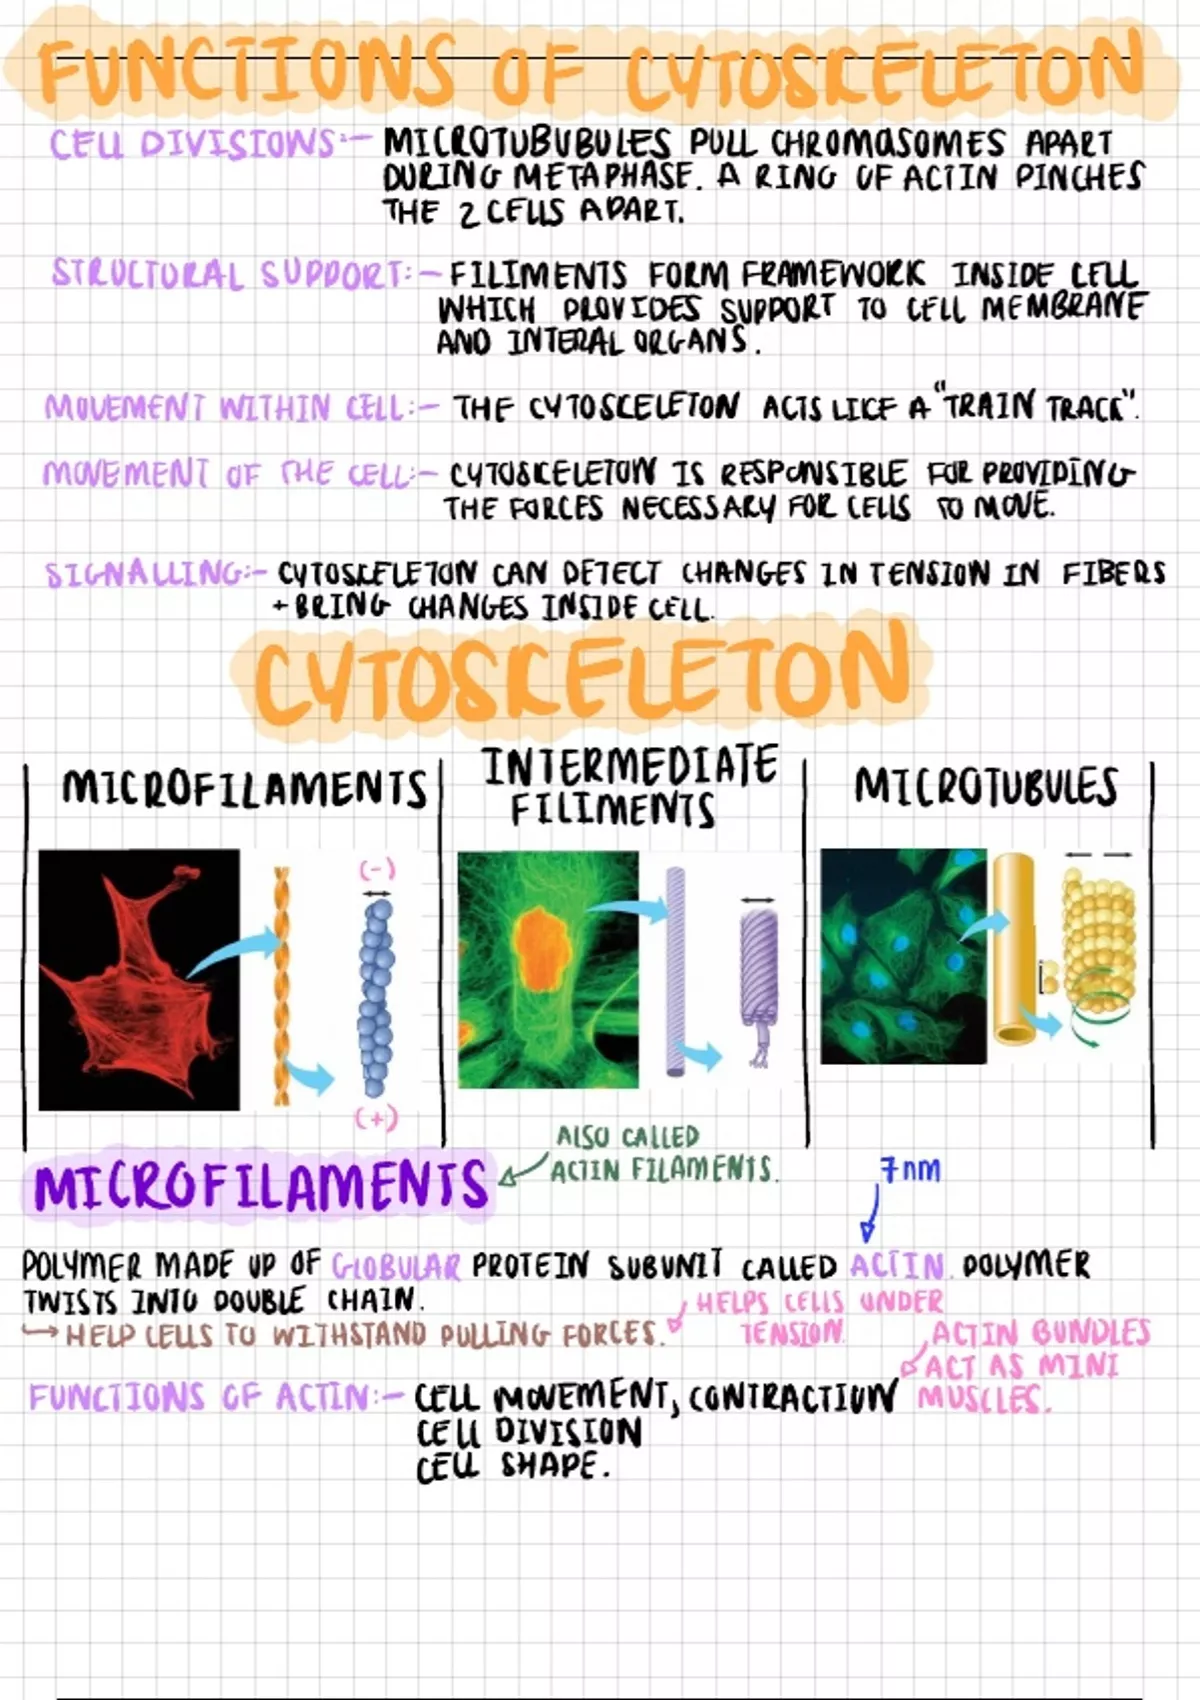 FUNCTIONS OF CYTOSKELETON
CELL DIVISIONS:- MICROTUBUBULES PULL CHROMOSOMES APART
DURING METAPHASE. A RING OF ACTIN PINCHES
THE 2 CELLS APART.
STRUCTURAL SUPPORT:- FILIMENTS FORM FRAMEWORK INSIDE CELL
WHICH PROVIDES SUPPORT TO CELL MEMBRANE
AND INTERAL ORGANS.
MOVEMENT WITHIN CELL:- THE CYTOSKELETON ACTS LIKE A "TRAIN TRACK".
MOVEMENT OF THE CELL:- CYTOSKELETON IS RESPONSIBLE FOR PROVIDING
THE FORCES NECESSARY FOR CELLS TO MOVE.
SIGNALLING:- CYTOSKELETON CAN DETECT CHANGES IN TENSION IN FIBERS
+ BRING CHANGES INSIDE CELL.
CYTOSKELETON
MICROFILAMENTS
INTERMEDIATE
FILIMENTS
MICROTUBULES
(-)
(+)
ALSO CALLED
ACTIN FILAMENTS.
MICROFILAMENTS
7nm
POLYMER MADE UP OF GLOBULAR PROTEIN SUBUNIT CALLED ACTIN. POLYMER
TWISTS INTO DOUBLE CHAIN.
HELPS CELLS UNDER
TENSION.
→ HELP CELLS TO WITHSTAND PULLING FORCES.
ACTIN BUNDLES
ACT AS MINI
MUSCLES.
FUNCTIONS OF ACTIN:- CELL MOVEMENT, CONTRACTION
CELL DIVISION
CELL SHAPE.